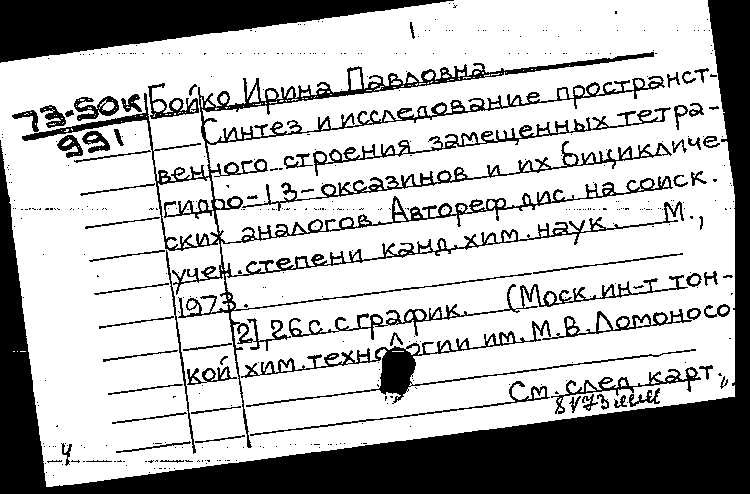 73-50к Бойко, Ирина Павловна.
991 Синтез и исследование пространст-
венного строения замещенных тетра-
гидро-1,3-оксазинов и их бицикличе-
ских аналогов. Автореф. дис. на соиск.
учен. степени канд. хим. наук. М.,
1973.
[2], 26 с. с график. (Моск. ин-т тон-
кой хим. технологии им. М.В. Ломоносо
См. след. карт.